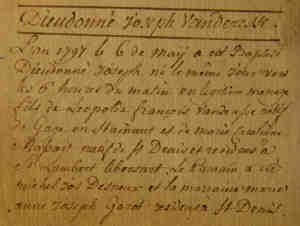 Dieudonné Joseph Vanderesse
L'an 1797 le 6 de maÿ a eté Baptisé
Dieudonné Joseph né le même jour vers
les 6 heure du matin en legitime mariage
fils de Leopolde françois Vanderesse natif
de Gage en Hainaut et de marie Caroline
natif de St Denis et residens à
St Lambert Le Parain a été
michel Jos Desneux et la marraine marie
anne Joseph Garot residens St Denis